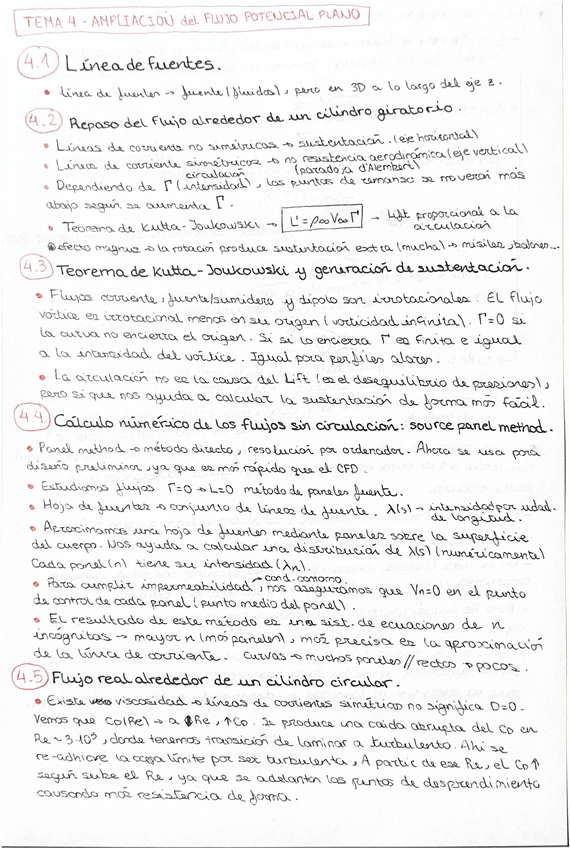 TEMA 4 - AMPLIACIÓN del FLUJO POTENCIAL PLANO
4.1 Línea de fuentes.
• Línea de fuentes → fuente (fluidos), pero en 3D a lo largo del eje z.
4.2 Repaso del flujo alrededor de un cilindro giratorio.
• Líneas de corriente no simétricas → sustentación. (eje horizontal)
• Líneas de corriente simétricas → no resistencia aerodinámica (eje vertical)
circulación (paradoja d'Alembert)
• Dependiendo de Γ (intensidad), los puntos de remanso se moverán más
abajo según se aumenta Γ.
• Teorema de Kutta-Joukowski → L' = ρ∞V∞Γ → Lift proporcional a la
circulación
• efecto magnus → la rotación produce sustentación extra (mucha) → misiles, balones...
4.3 Teorema de Kutta-Joukowski y generación de sustentación.
• Flujos corriente, fuente/sumidero y dipolo son irrotacionales. EL flujo
vórtice es irrotacional menos en su origen (vorticidad infinita). Γ=0 si
la curva no encierra el origen. Si si lo encierra Γ es finita e igual
a la intensidad del vórtice. Igual para perfiles alares.
• La circulación no es la causa del Lift (es el desequilibrio de presiones),
pero si que nos ayuda a calcular la sustentación de forma más fácil.
4.4 Cálculo numérico de los flujos sin circulación: source panel method.
• Panel method → método directo, resolución por ordenador. Ahora se usa para
diseño preliminar, ya que es más rápido que el CFD.
• Estudiamos flujos Γ=0 → L=0 método de paneles fuente.
• Hoja de fuentes → conjunto de líneas de fuente. λ(s) → intensidad por udad.
de longitud.
• Aproximamos una hoja de fuentes mediante paneles sobre la superficie
del cuerpo. Nos ayuda a calcular una distribución de λ(s) (numéricamente)
Cada panel (n) tiene su intensidad (λn).
cond. contorno.
• Para cumplir impermeabilidad, nos aseguramos que Vn=0 en el punto
de control de cada panel (punto medio del panel).
• El resultado de este método es un sist. de ecuaciones de n
incógnitas → mayor n (más paneles), más precisa es la aproximación
de la línea de corriente. Curvas → muchos paneles // rectas → pocos.
4.5 Flujo real alrededor de un cilindro circular.
• Existe viscosidad → líneas de corrientes simétricas no significa D=0.
Vemos que CD(Re) → a Re, ↑CD. Se produce una caída abrupta del CD en
Re ~ 3·10⁵, donde tenemos transición de laminar a turbulento. Ahí se
re-adhiere la capa límite por ser turbulenta. A partir de ese Re, el CD ↑
según sube el Re, ya que se adelantan los puntos de desprendimiento
causando más resistencia de forma.